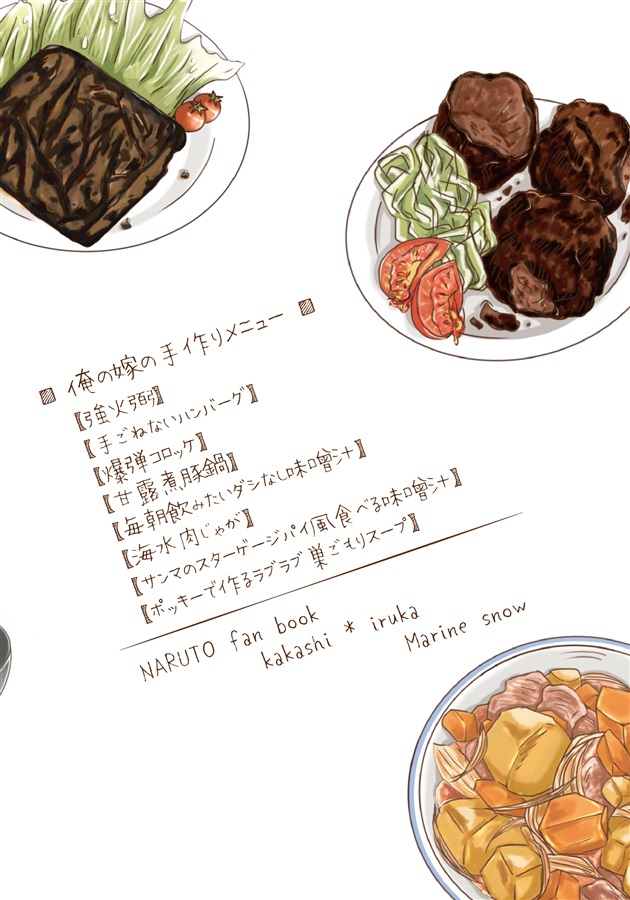 俺の嫁の手作りメニュー
【強火弱】
【手ごねないハンバーグ】
【爆弾コロッケ】
【甘露煮豚鍋】
【毎朝飲みたいダシなし味噌汁】
【海水肉じゃが】
【サンマのスターゲージパイ風食べる味噌汁】
【ポッキーで作るラブラブ巣ごもりスープ】
NARUTO fan book
kakashi * iruka
Marine snow